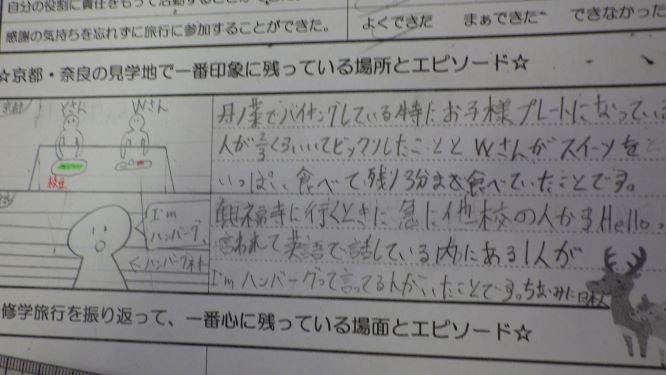 自分の役割に責任をもって活動することが
感謝の気持ちを忘れずに旅行に参加することができた。
よくできた まあできた できなかった
☆京都・奈良の見学地で一番印象に残っている場所とエピソード☆
京都
Yさん Wさん
枝豆
でバイキングしている時にお子様プレートになっている
人が2/3くらいいてビックリしたこととWさんがスイーツを
いっぱい食べて残り3分まで食べていたことです。
I'm
ハンバーグ
興福寺に行くときに急に他校の人からHello
言われて英語で話している内にある1人が
I'm ハンバーグって言ってる人がいたことです。ちなみに日本人
修学旅行を振り返って、一番心に残っている場面とエピソード☆